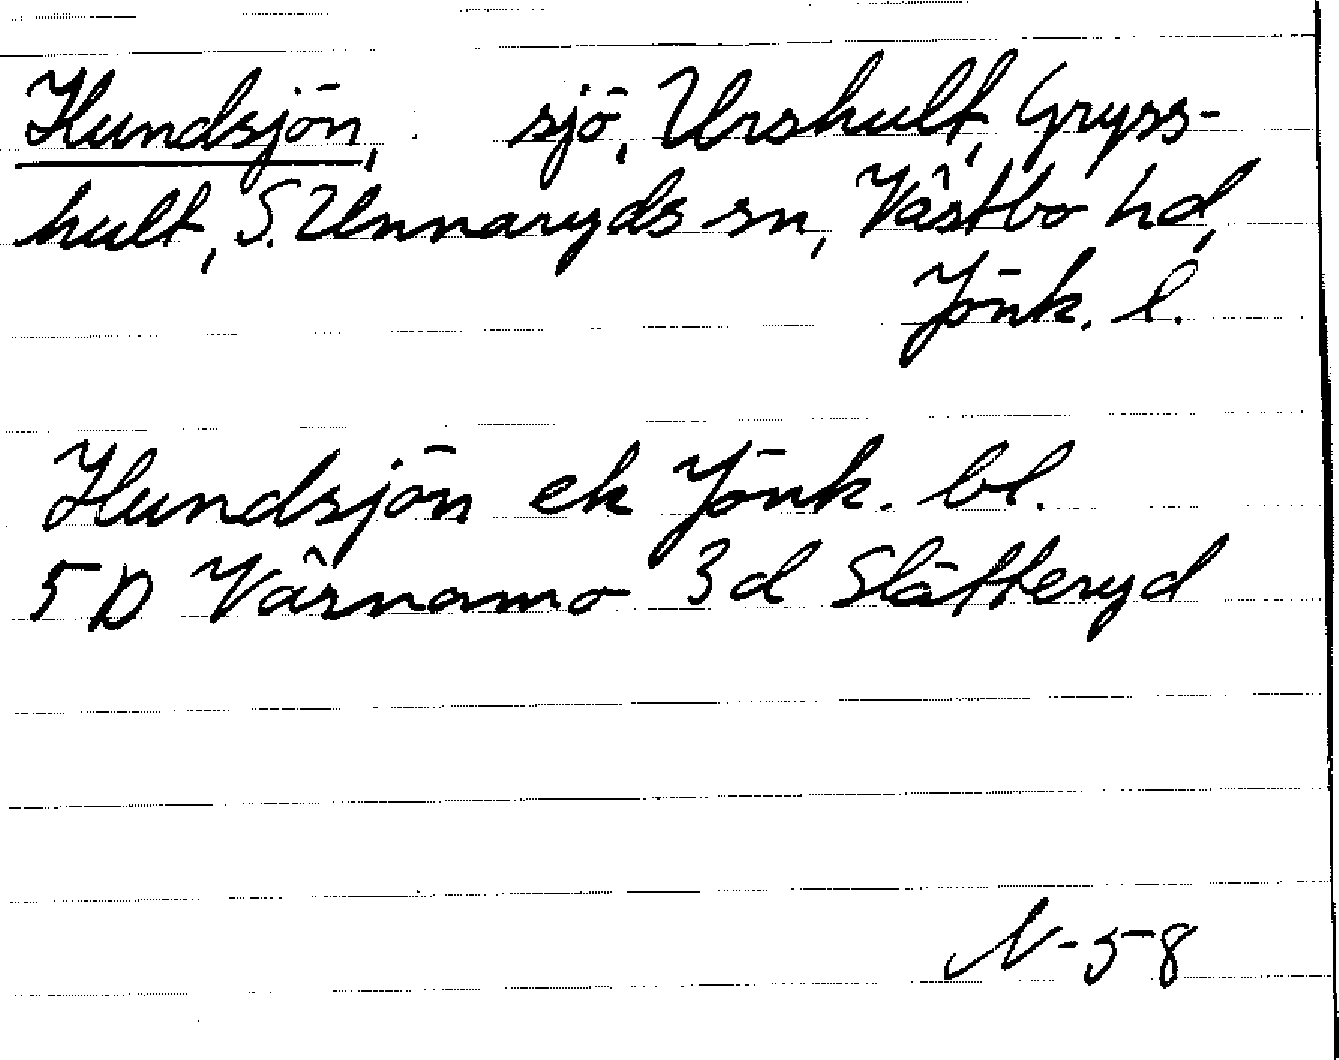 Hundsjön, sjö, Urshult, Gryss-
hult, S. Unnaryds sn, Västbo hd,
Jönk. l.
Hundsjön ek Jönk. bl.
5 D Värnamo 3 d Slätteryd
N-58